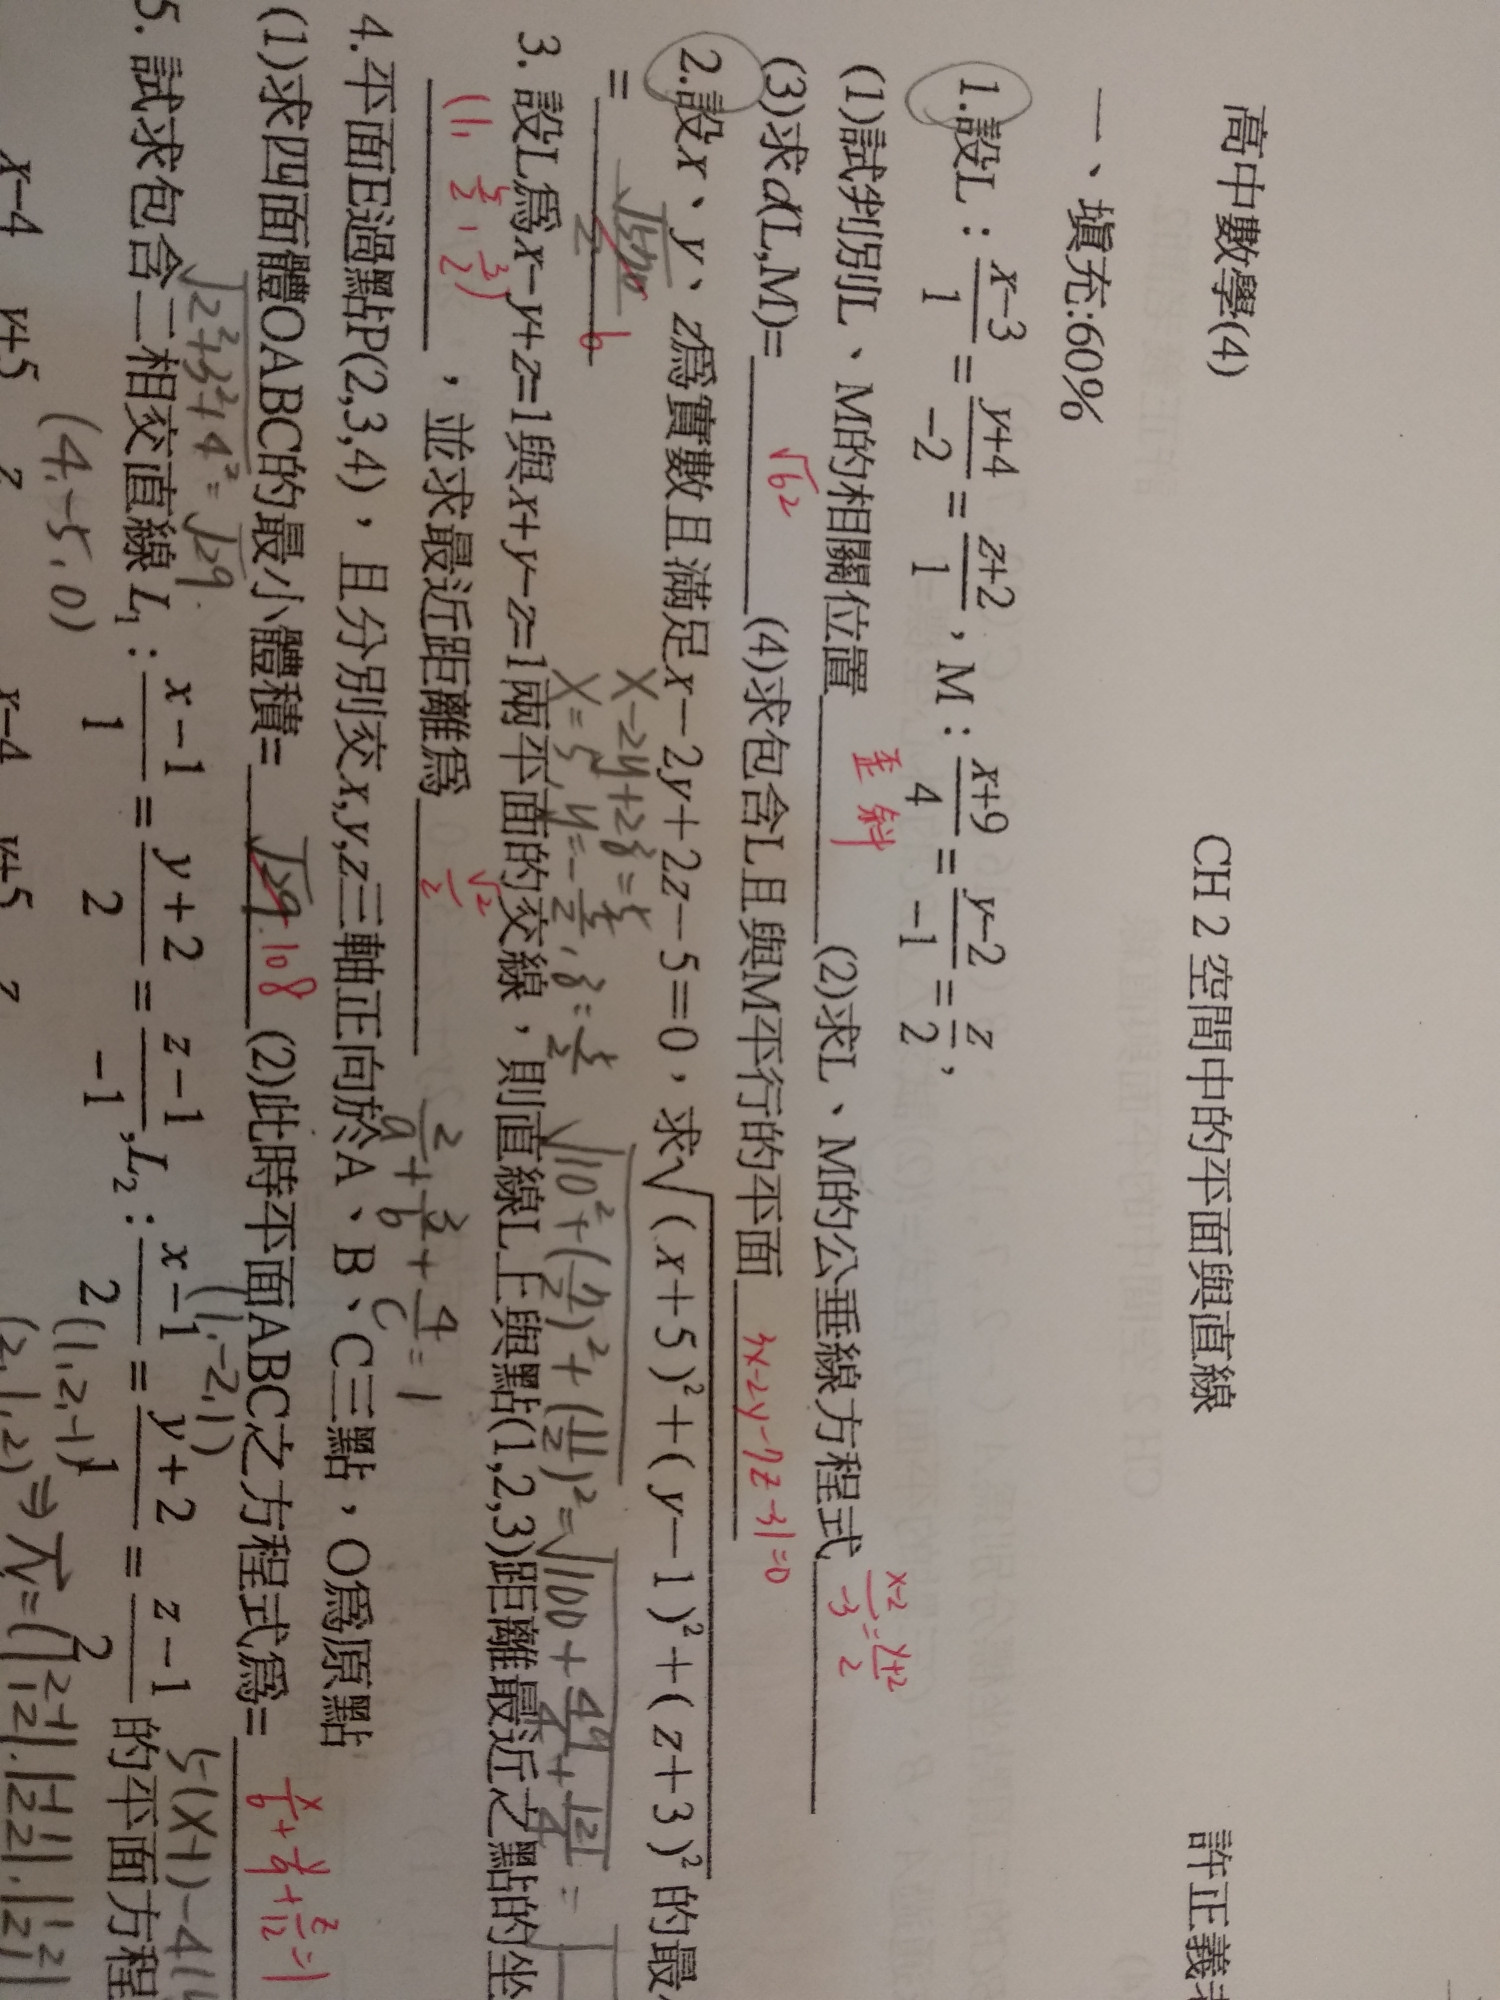 高中數學(4) CH 2 空間中的平面與直線 許正義
一、填充:60%
1.設L：x−3/1 = y+4/−2 = z+2/1，M：x+9/4 = y−2/−1 = z/2，
(1)試判別L、M的相關位置 歪斜 (2)求L、M的公垂線方程式 x−2/−3 = y+2/2
(3)求d(L,M)= √62 (4)求包含L且與M平行的平面 3x−2y−7z−31=0
2.設x、y、z為實數且滿足x−2y+2z−5=0，求√(x+5)²+(y−1)²+(z+3)² 的最
= 6
x−2y+2z=5
x=5, y=−5/2, z=5/2
√10²+(7/2)²+(11/2)²=√100+49/4+121/4=
3. 設L為x−y+z=1與x+y−z=1兩平面的交線，則直線L上與點(1,2,3)距離最近之點的坐
(1, 5/2, 5/2)，並求最近距離為 √2/2
2/a+3/b+4/c=1
4.平面E過點P(2,3,4)，且分別交x,y,z三軸正向於A、B、C三點，O為原點
(1)求四面體OABC的最小體積= √29 108 (2)此時平面ABC之方程式為= x/6+y/9+z/12=1
√2²+3²+4²=√29
(1,−2,1)
5(x−1)−4(y
5. 試求包含二相交直線 L₁：x−1/1 = y+2/2 = z−1/−1, L₂：x−1/2 = y+2/1 = z−1/2 的平面方程
(4,−5,0) (1,2,−1)
(2,1,2)
x−4 y+5 z x−4 y+5 z